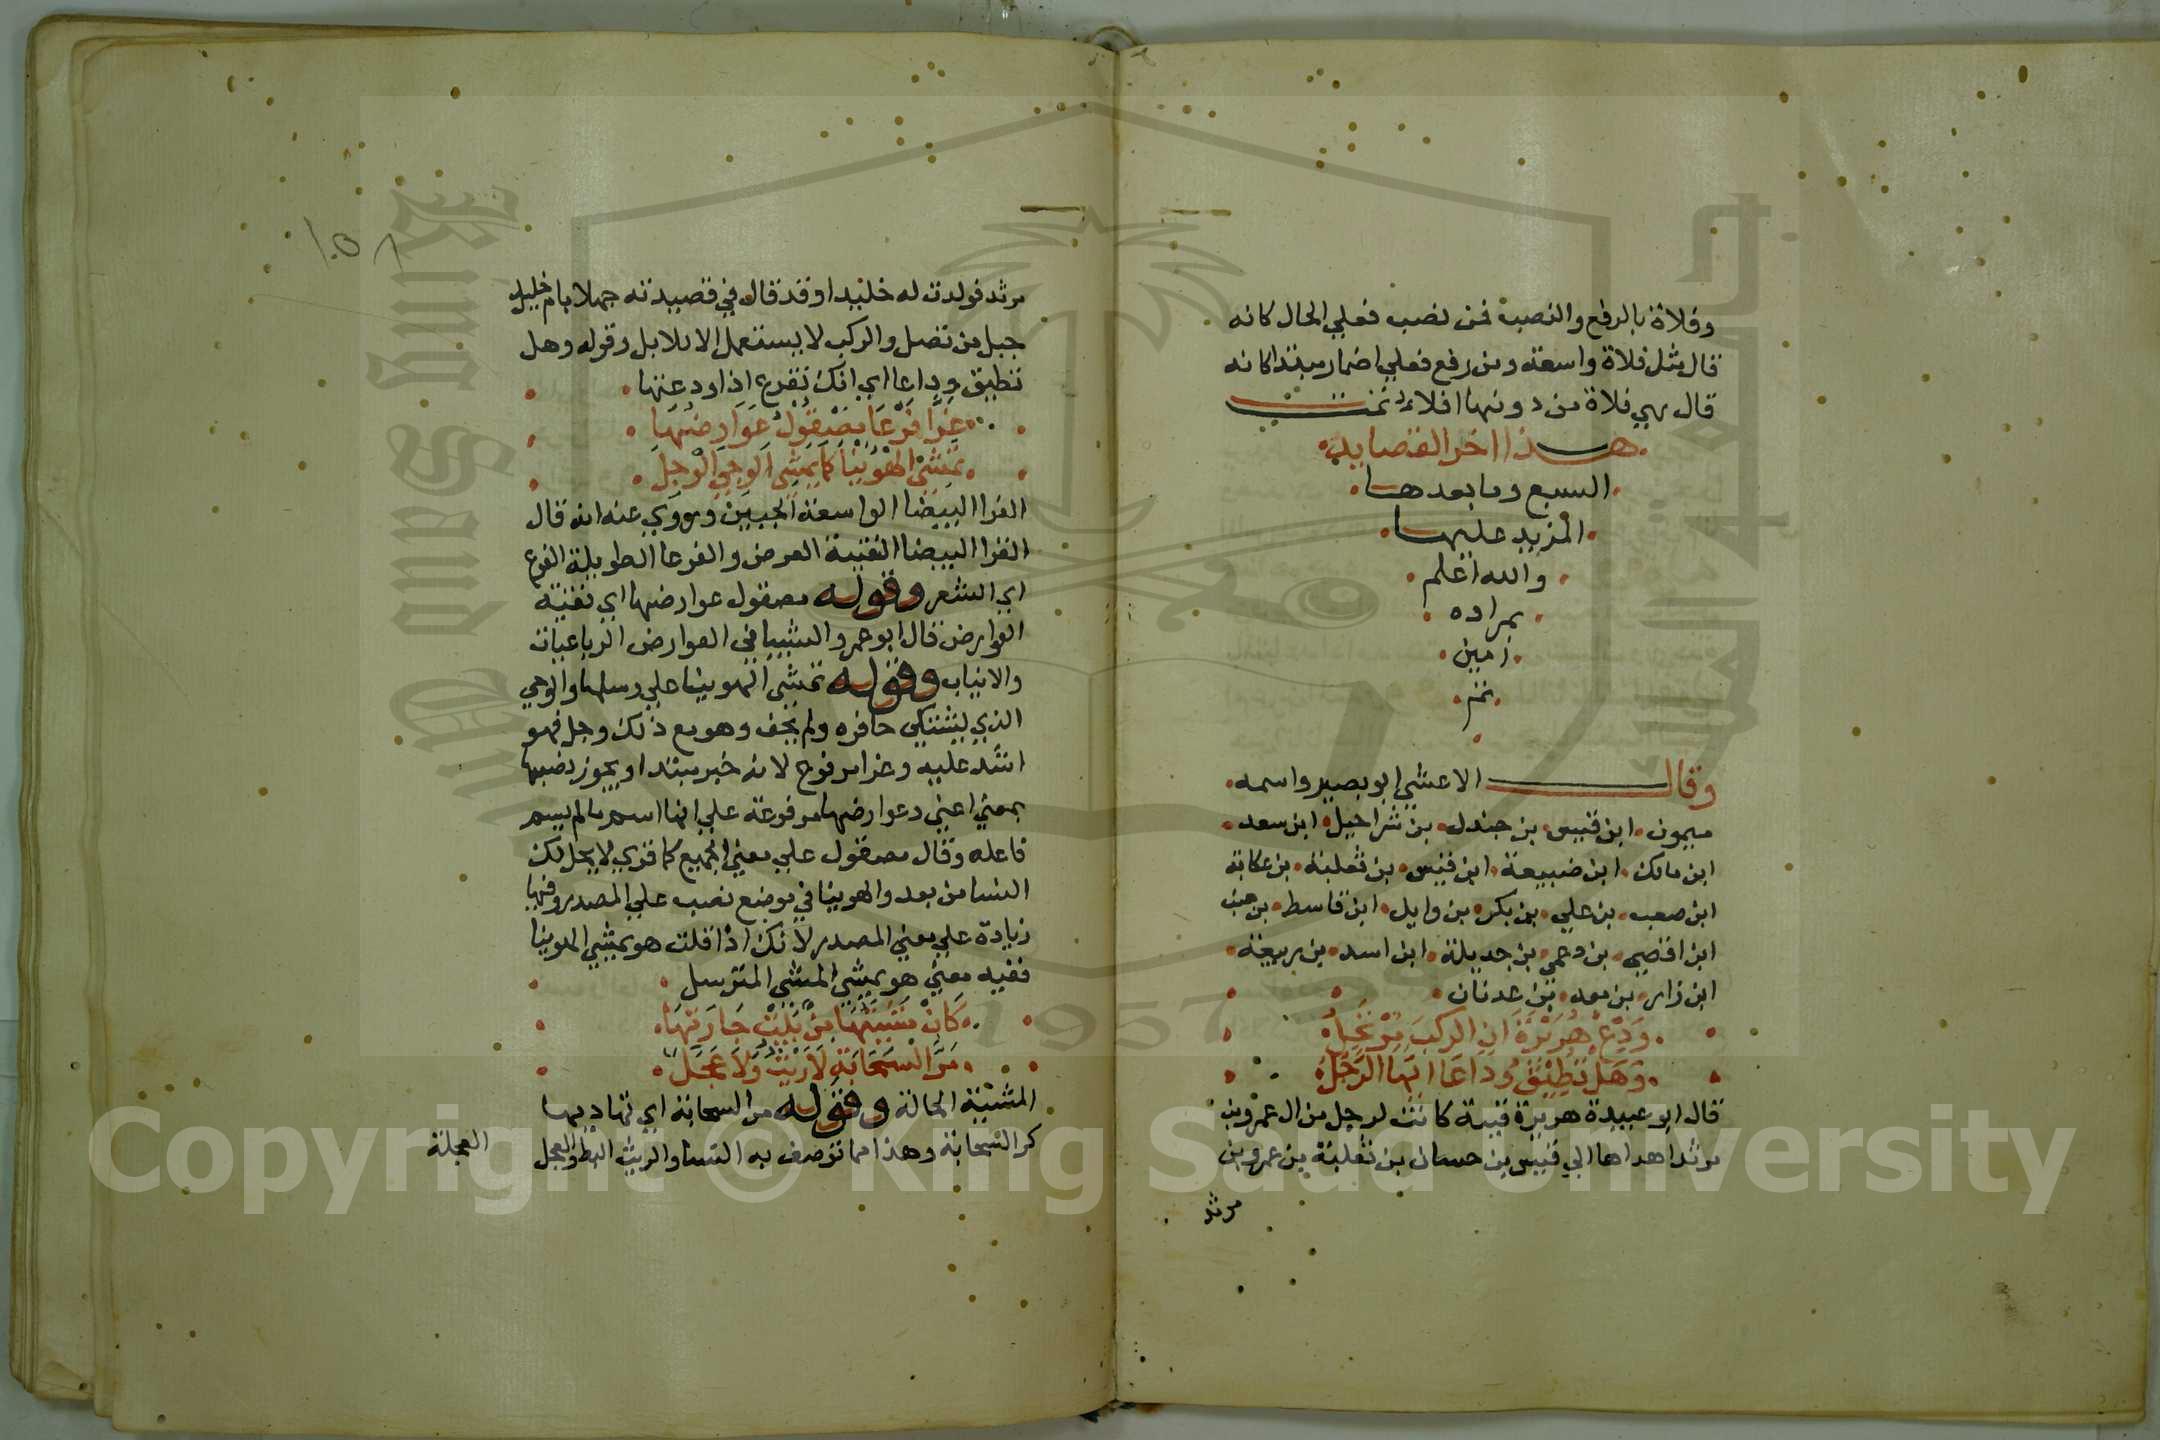 وفلاة بالرفع والنصب فمن نصب فعلي الحال كانه
قال مثل فلاة واسعة ومن رفع فعلي اضمار مبتدا كانه
قال هي فلاة من دونها افلاء تمت
هذا اخر القصايد
السبع وما بعدها
المزيد عليها
والله اعلم
بمراده
امين
تم
وقال الاعشي ابو بصير واسمه
ميمون ابن قيس بن جندل بن شراحيل ابن سعد
ابن مالك ابن ضبيعة ابن قيس بن ثعلبة بن عكابة
ابن صعب بن علي بن بكر بن وايل ابن قاسط بن هنب
ابن افصي بن دعمي بن جديلة ابن اسد بن ربيعة
ابن نزار بن معد بن عدنان
وَدِّعْ هُرَيْرَةَ اِن الركبَ مُرْتَحِلُ
وَهَلْ تُطِيْقُ وِدَاعًا اَيُّهَا الرَّجُلُ
قال ابو عبيدة هريرة قينة كانت لرجل من ال عمرو بن
مرثد اهداها الي قيس بن حسان بن ثعلبة بن عمرو بن
مرثد
١٥٨
مرثد فولدت له خليدا وقد قال في قصيدته جهلا بام خليد
حبل من تصل والركب لا يستعمل الا للابل وقوله وهل
تطيق وداعا اي انك تفزع اذا ودعتها
غَرَّا فَرْعَا مَصْقُولٌ عَوَارِضُهَا
تَمْشِي الهُوَيْنَا كَمَا يَمْشِي الوَجِي الْوَجِلُ
الغرا البيضا الواسعة الجبين وروي عنه انه قال
الغرا البيضا النقية العرض والفرعا الطويلة الفرع
اي الشعر وقوله مصقول عوارضها اي نقية
العوارض قال ابو عمرو الشيباني العوارض الرباعيات
والانياب وقوله تمشي الهوينا علي رسلها والوجي
الذي يشتكي حافره ولم يخف وهو مع ذلك وجل فهو
اشد عليه وغرا مرفوع لانه خبر مبتدا ويجوز نصبها
بمعني اعني وعوارضها مرفوعة علي انها اسم ما لم يسم
فاعله وقال مصقول علي معني الجميع كما قري لا يحل لك
النسا من بعد والهوينا في موضع نصب علي المصدر وفيها
زيادة علي معني المصدر لانك اذا قلت هو يمشي الهوينا
ففيه معني هو يمشي المشي المترسل
كَاَنَّ مَشْيَتَهَا مِنْ بَيْتِ جَارَتِهَا
مَرُّ السَّحَابَةِ لَا رَيْثٌ وَلَا عَجَلُ
المشية الحالة وقوله مر السحابة اي تهاديها
كمر السحابة وهذا مما توصف به النسا والريث البط والعجل
العجلة
Copyright © King Saud University
King Saud University
1957